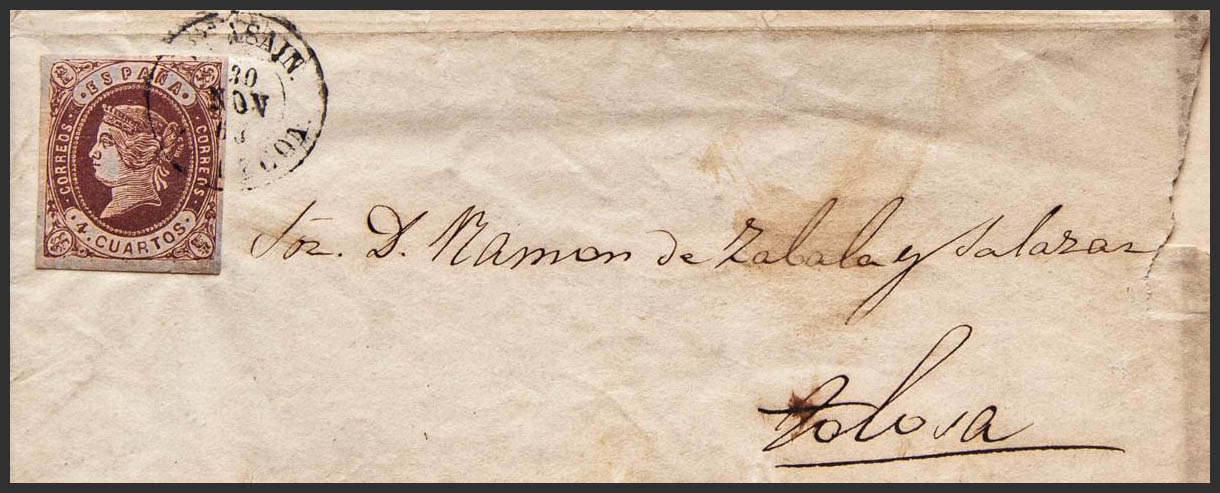 ESPAÑA
CORREOS
CORREOS
4. CUARTOS.
ASAIN.
30
NOV
Sór. D. Ramon de Zabala y Salazar
tolosa